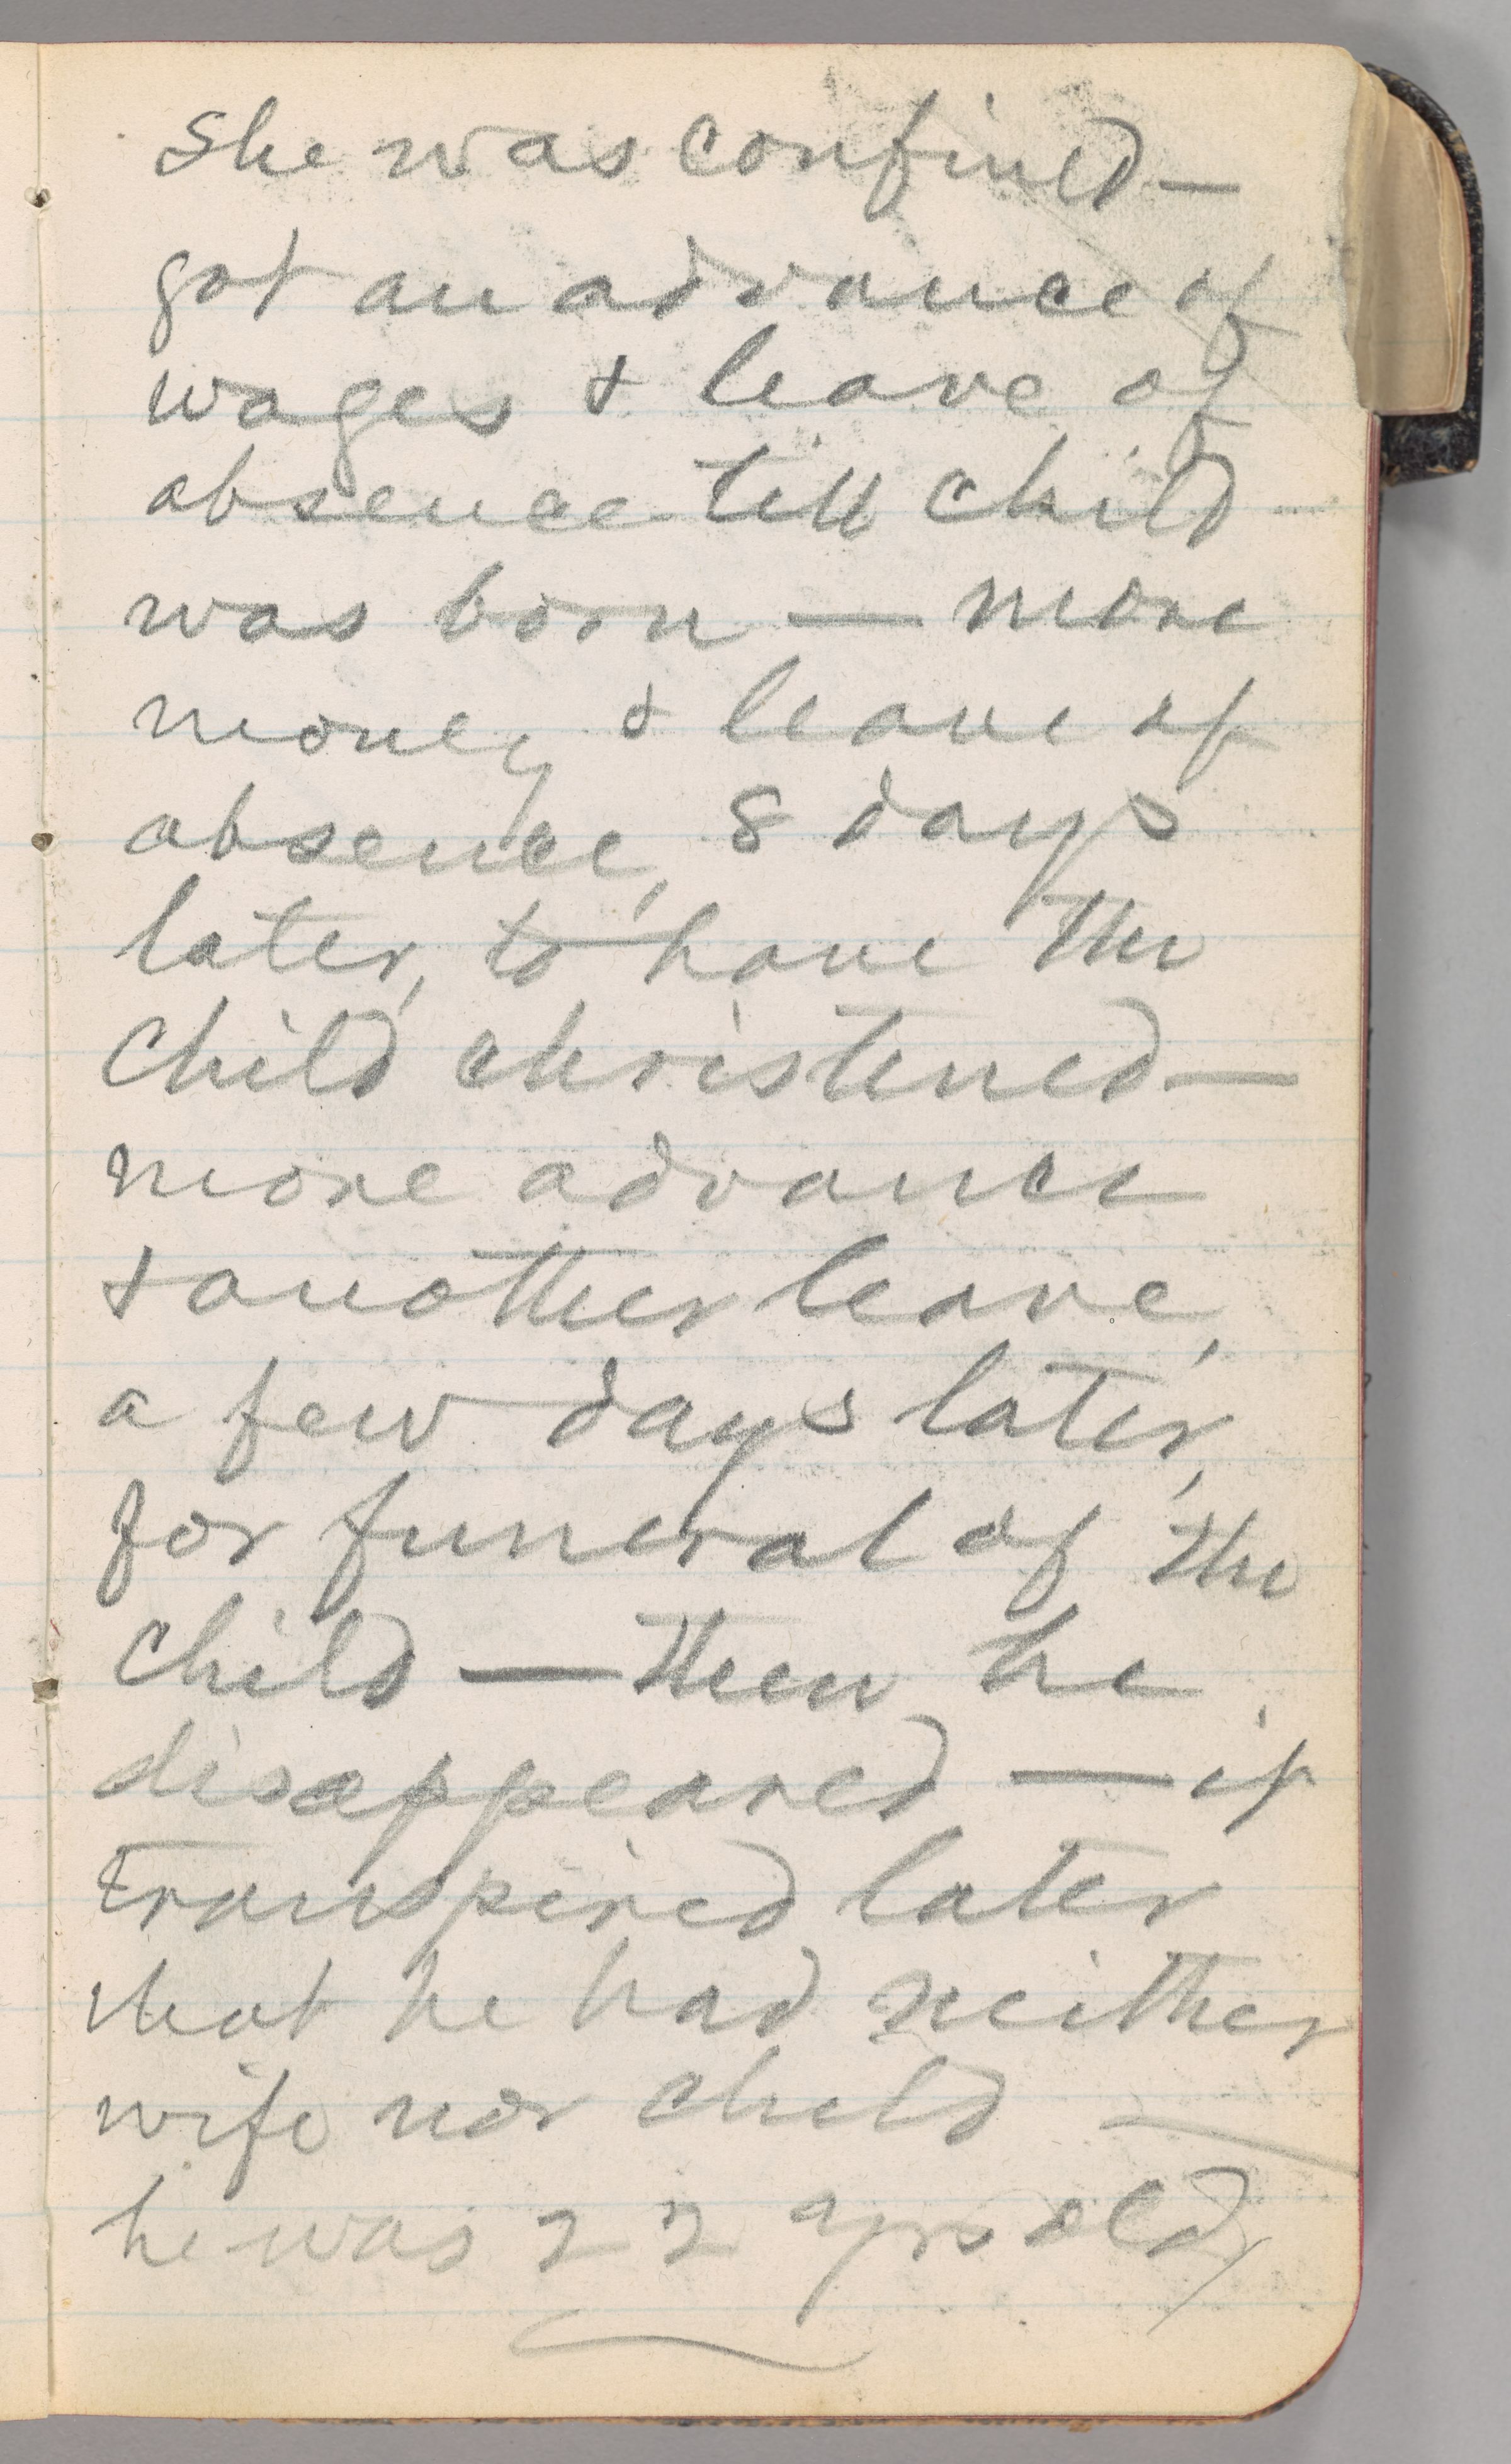 She was confined—
got an advance of
wages & leave of
absence till child
was born — more
money & leave of
absence, 8 days
later, to have the
child christened—
more advance
& another leave,
a few days later,
for funeral of the
child — then he
disappeared — it
transpired later
that he had neither
wife nor child —
he was 22 yrs old,